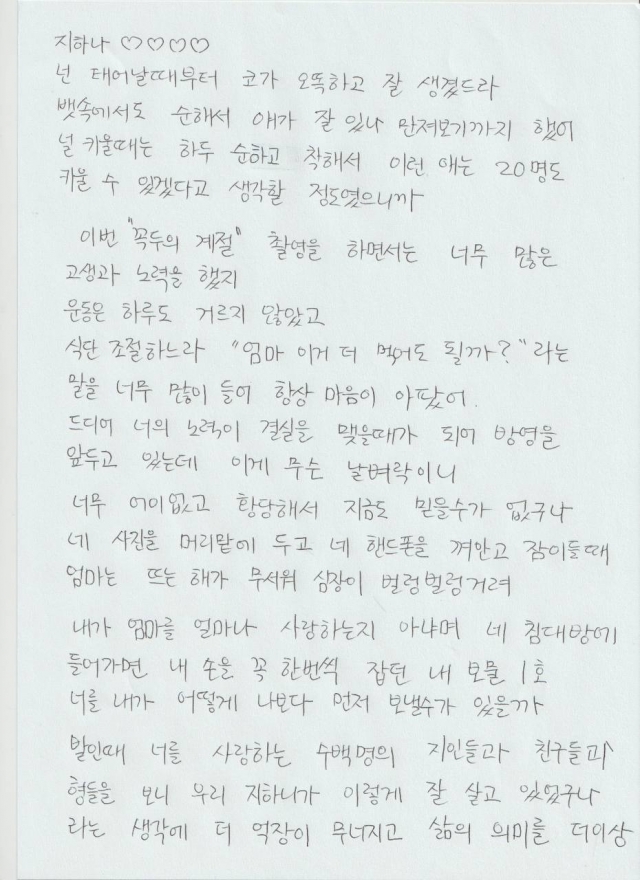 지하나 ♡♡♡♡
넌 태어날때부터 코가 오똑하고 잘 생겼드라
뱃속에서도 순해서 얘가 잘 있나 만져보기까지 했어
널 키울때는 하두 순하고 착해서 이런 애는 20명도
키울 수 있겠다고 생각할 정도였으니까
이번 "꼭두의 계절" 촬영을 하면서는 너무 많은
고생과 노력을 했지
운동은 하루도 거르지 않았고
식단 조절하느라 "엄마 이거 더 먹어도 될까?"라는
말을 너무 많이 들어 항상 마음이 아팠어.
드디어 너의 노력이 결실을 맺을때가 되어 방영을
앞두고 있는데 이게 무슨 날벼락이니
너무 어이없고 황당해서 지금도 믿을수가 없구나
네 사진을 머리맡에 두고 네 핸드폰을 껴안고 잠이들때
엄마는 뜨는 해가 무서워 심장이 벌렁벌렁거려
내가 엄마를 얼마나 사랑하는지 아냐며 네 침대방에
들어가면 내 손을 꼭 한번씩 잡던 내 보물 1호
너를 내가 어떻게 나보다 먼저 보낼수가 있을까
발인때 너를 사랑하는 수백명의 지인들과 친구들과
형들을 보니 우리 지하니가 이렇게 잘 살고 있었구나
라는 생각에 더 억장이 무너지고 삶의 의미를 더이상